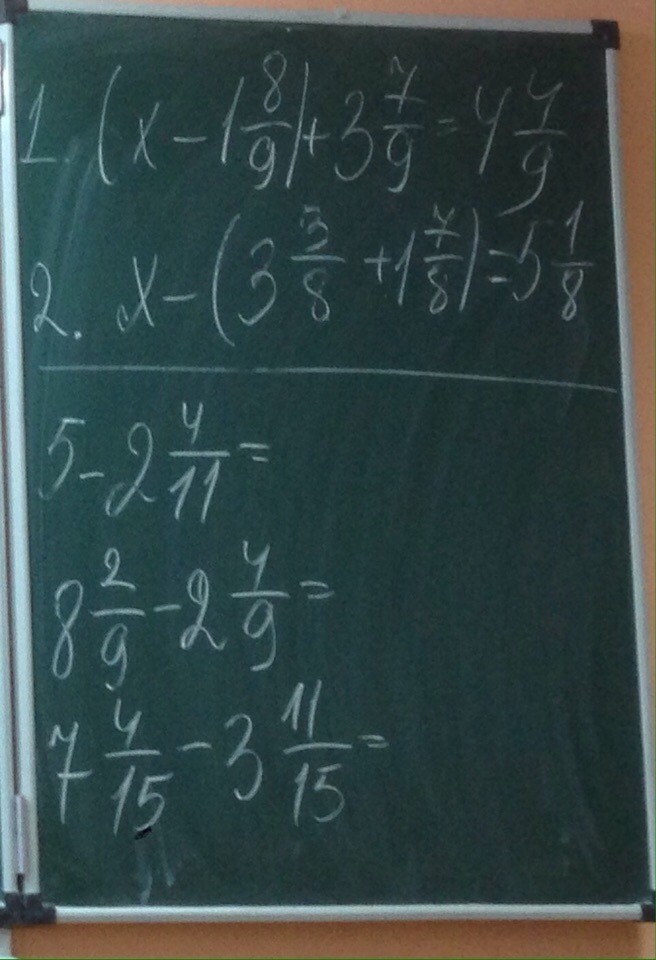 1. (x - 1 8/9) + 3 7/9 = 4 4/9
2. x - (3 3/8 + 1 7/8) = 5 1/8
5 - 2 4/11 =
8 2/9 - 2 4/9 =
7 4/15 - 3 11/15 =